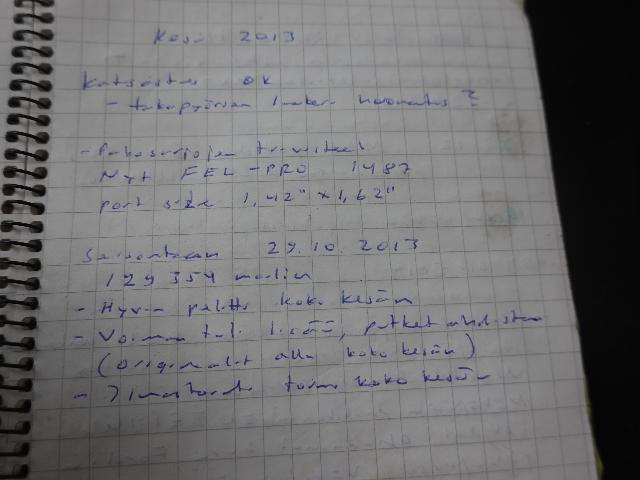 Kesä 2013
Katsastus OK
- takapyörien laaker huomautus ?
- Pakosarjojen tiivisteet
Nyt FEL-PRO 1487
port size 1,42" x 1,62"
Seisontaan 29.10.2013
129 354 mailia
- Hyvin palvellut koko kesän
- Voimaa tuli lisää, putket
(originalit alla koko kesän)
- toimi koko kesän